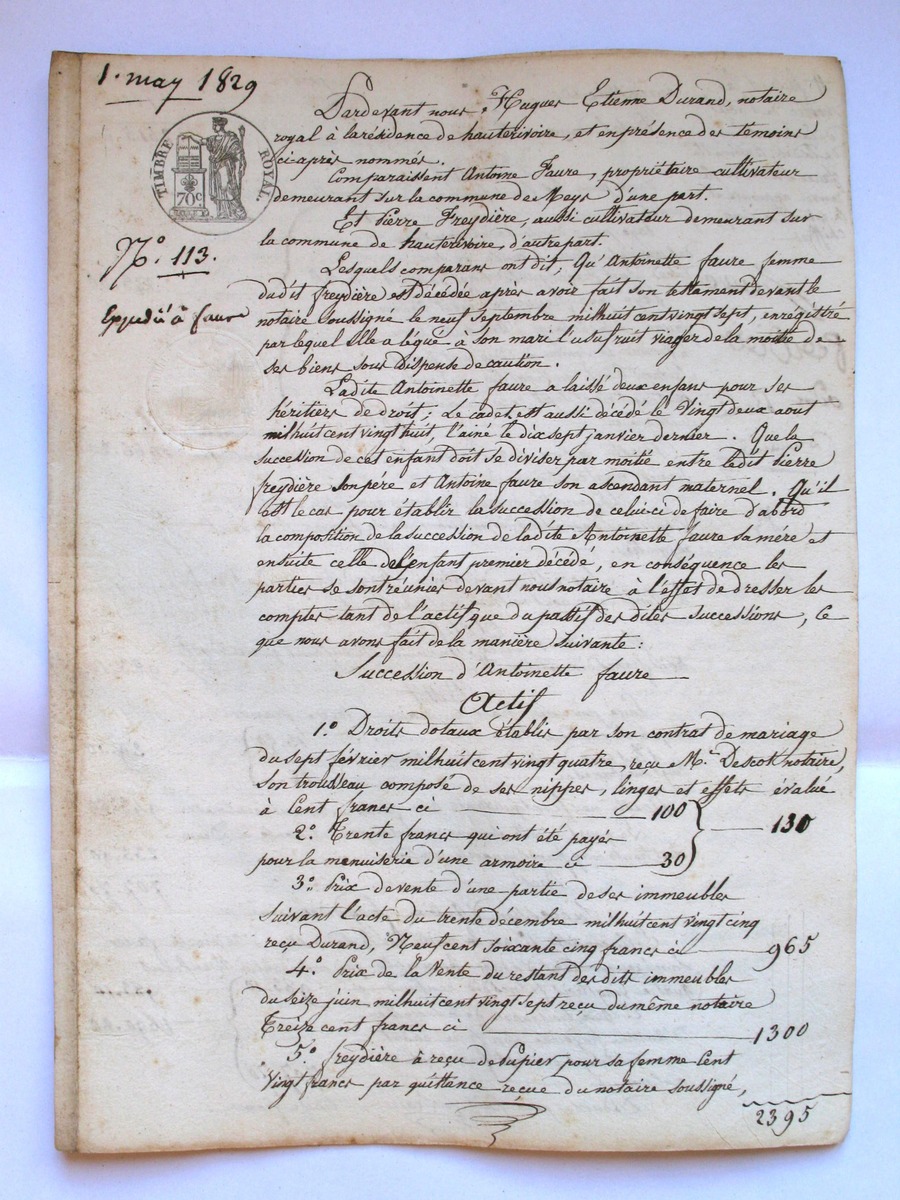 1. may 1829
TIMBRE ROYAL.
70c
N.o 113.
Expedié à faure
Pardevant nous, Hugues Etienne Durand, notaire
royal à la résidence de hauterivoire, et en présence des témoins
ci-après nommés.
Comparaissent Antoine Faure, propriétaire cultivateur
demeurant sur la commune de Meys d'une part.
Et Pierre Freydière, aussi cultivateur demeurant sur
la commune de hauterivoire, d'autre part.
Lesquels comparans ont dit, Qu'Antoinette faure femme
dudit freydière est décédée après avoir fait son testament devant le
notaire soussigné le neuf Septembre mil huit cent vingt sept, enregistré
par lequel Elle a légué à son mari l'usufruit viager de la moitié de
ses biens sous dispense de caution.
Ladite Antoinette faure a laissé deux enfans pour ses
héritiers de droit; Le cadet est aussi décédé le Vingt deux aout
mil huit cent vingt huit, l'ainé le dix sept janvier dernier. Que la
succession de cet enfant doit se diviser par moitié entre ledit Pierre
freydière son pere et Antoine faure son ascendant maternel. Qu'il
est le cas pour établir la succession de celui-ci de faire d'abord
la composition de la succession de ladite Antoinette faure sa mére et
ensuite celle de l'enfant premier décédé, en conséquence les
parties se sont réunies devant nous notaire à l'effet de dresser les
comptes tant de l'actif que du passif des dites successions, Ce
que nous avons fait de la manière suivante:
Succession d'Antoinette faure
Actif
1.o Droits dotaux établis par son contrat de mariage
du sept février mil huit cent vingt quatre, reçu M.e Descot notaire,
son trousseau composé de ses nippes, linges et effets évalué
à Cent francs ci 100
2.o Trente francs qui ont été payés 130
pour la menuiserie d'une armoire ci 30
3.o Prix de vente d'une partie de ses immeubles
suivant l'acte du trente décembre mil huit cent vingt cinq
reçu Durand, Neuf cent soixante cinq francs ci 965
4.o Prix de la Vente du restant des dits immeubles
du seize juin mil huit cent vingt sept reçu du même notaire
Treize cent francs ci 1300
5.o freydière à reçu de Pupier pour sa femme Cent
Vingt francs par quittance reçue du notaire soussigné,
2395